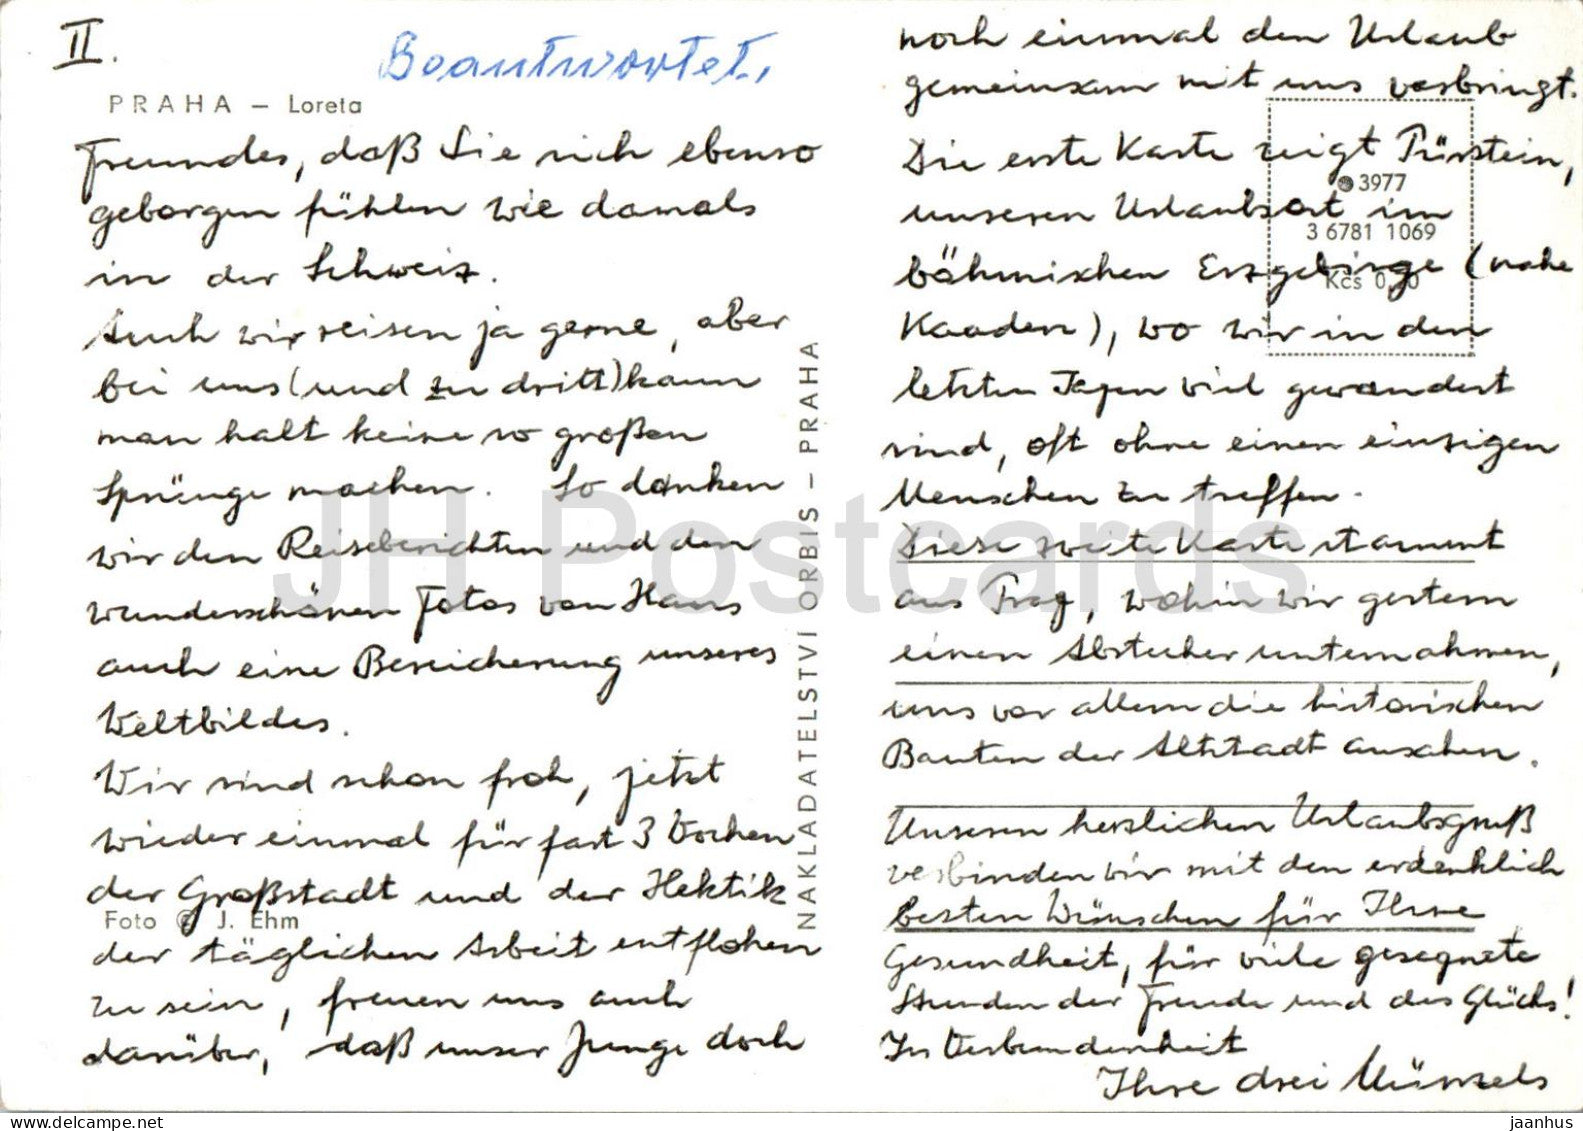 II.
Beantwortet.
PRAHA – Loreta
Freundes, daß Sie sich ebenso
geborgen fühlen wie damals
in der Schweiz.
Auch wir reisen ja gerne, aber
bei uns (und zu dritt) kann
man halt keine so großen
Sprünge machen. So danken
wir den Reiseberichten und den
wunderschönen Fotos von Hans
auch eine Bereicherung unseres
Weltbildes.
Wir sind schon froh, jetzt
wieder einmal für fast 3 Wochen
der Großstadt und der Hektik
Foto © J. Ehm
der täglichen Arbeit entflohen
zu sein, freuen uns auch
darüber, daß unser Junge doch
NAKLADATELSTVÍ ORBIS – PRAHA
noch einmal den Urlaub
gemeinsam mit uns verbringt.
Die erste Karte zeigt Pürstein,
unseren Urlaubsort im
böhmischen Erzgebirge (nahe
Kaaden), wo wir in den
letzten Tagen viel gewandert
sind, oft ohne einen einzigen
Menschen zu treffen.
Diese zweite Karte stammt
aus Prag, wohin wir gestern
einen Abstecher unternahmen,
uns vor allem die historischen
Bauten der Altstadt ansahen.
Unseren herzlichen Urlaubsgruß
verbinden wir mit den erdenklich
besten Wünschen für Ihre
Gesundheit, für viele gesegnete
Stunden der Freude und des Glücks!
In Verbundenheit
Ihre drei Münzels
3977
3 6781 1069
Kčs 0,
JH Postcards
jaanhus
www.delcampe.net